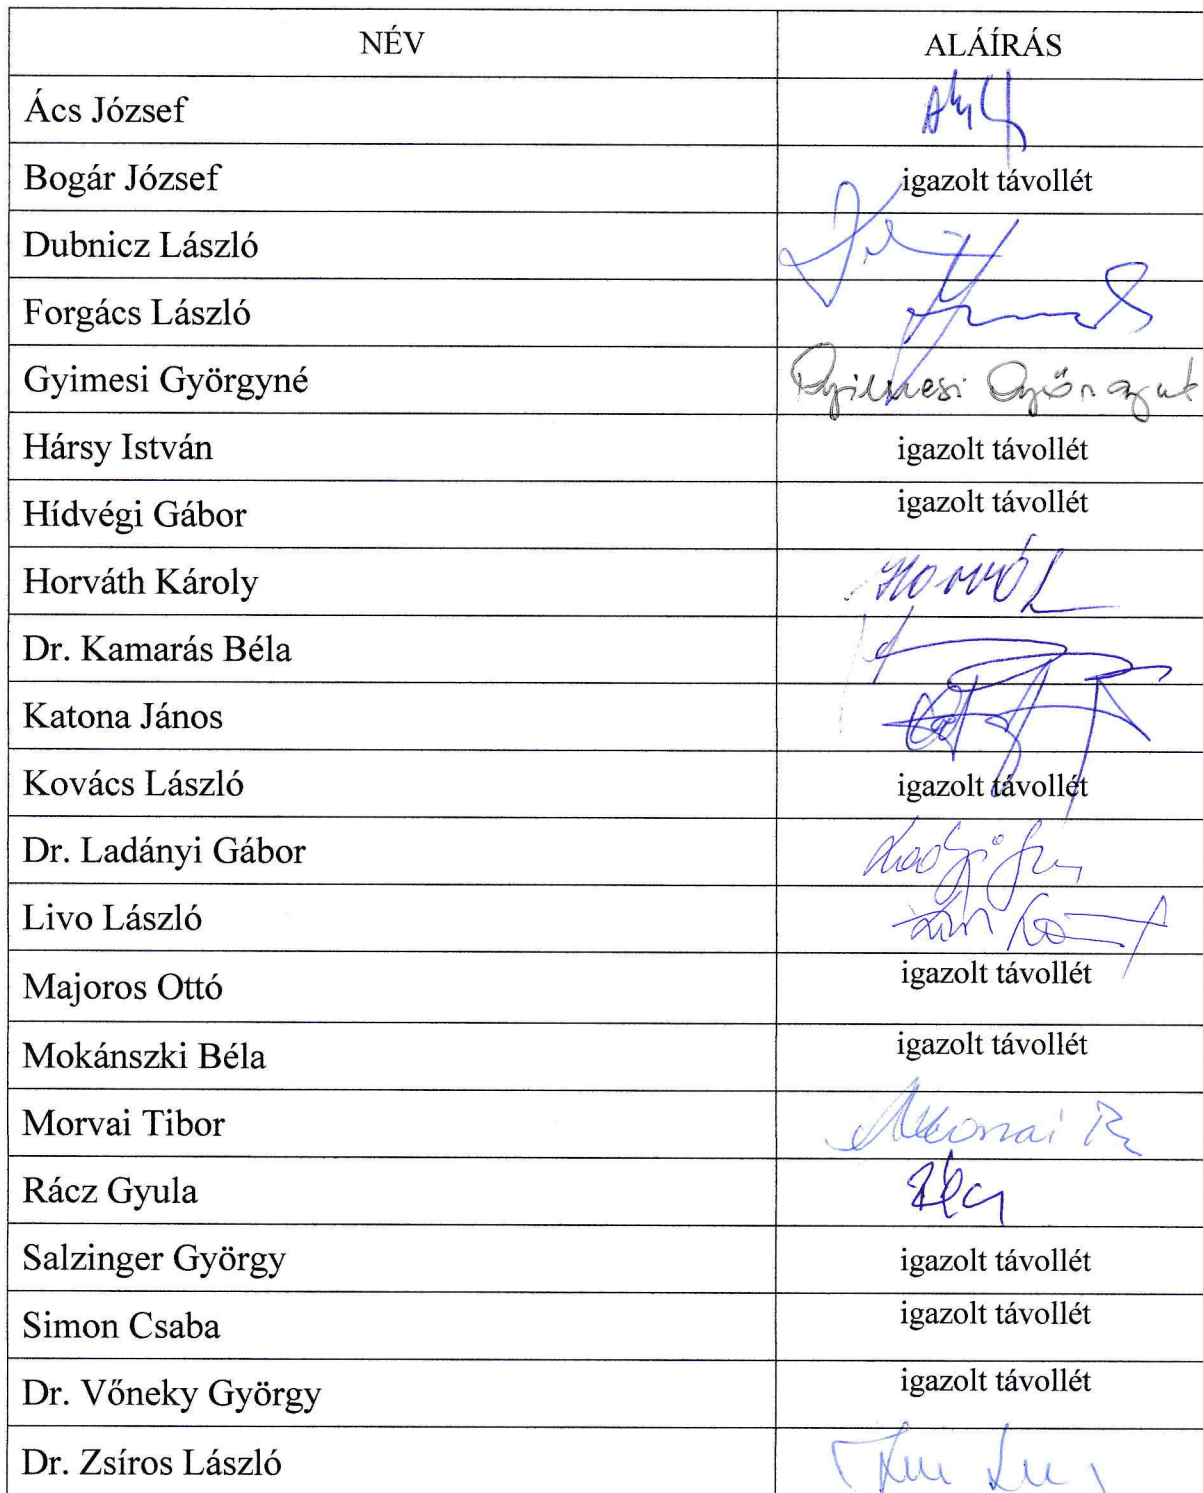 NÉV ALÁÍRÁS
Ács József
Bogár József igazolt távollét
Dubnicz László
Forgács László
Gyimesi Györgyné Gyimesi
Hársy István igazolt távollét
Hídvégi Gábor igazolt távollét
Horváth Károly
Dr. Kamarás Béla
Katona János
Kovács László igazolt távollét
Dr. Ladányi Gábor
Livo László
Majoros Ottó igazolt távollét
Mokánszki Béla igazolt távollét
Morvai Tibor
Rácz Gyula
Salzinger György igazolt távollét
Simon Csaba igazolt távollét
Dr. Vőneky György igazolt távollét
Dr. Zsíros László